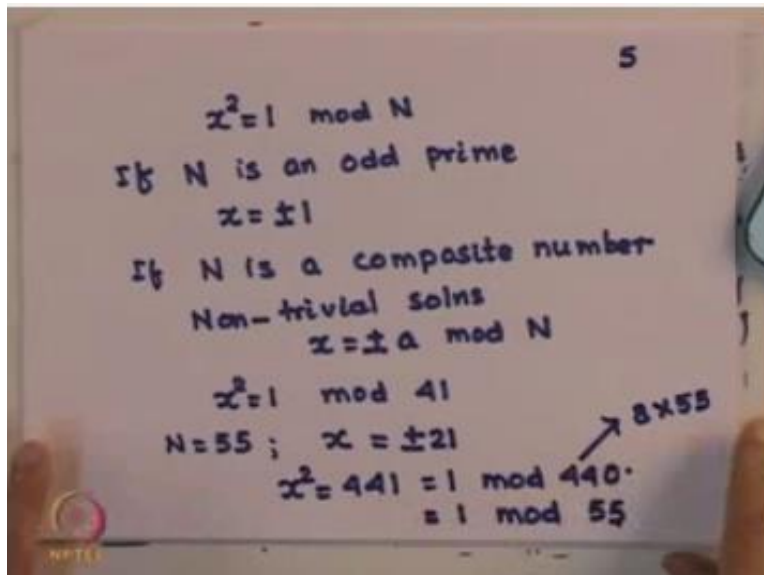 5
x²=1 mod N
If N is an odd prime
x=±1
If N is a composite number
Non-trivial solns
x=±a mod N
x²=1 mod 41
N=55; x=±21
8×55
x²=441=1 mod 440.
=1 mod 55
NPTEL